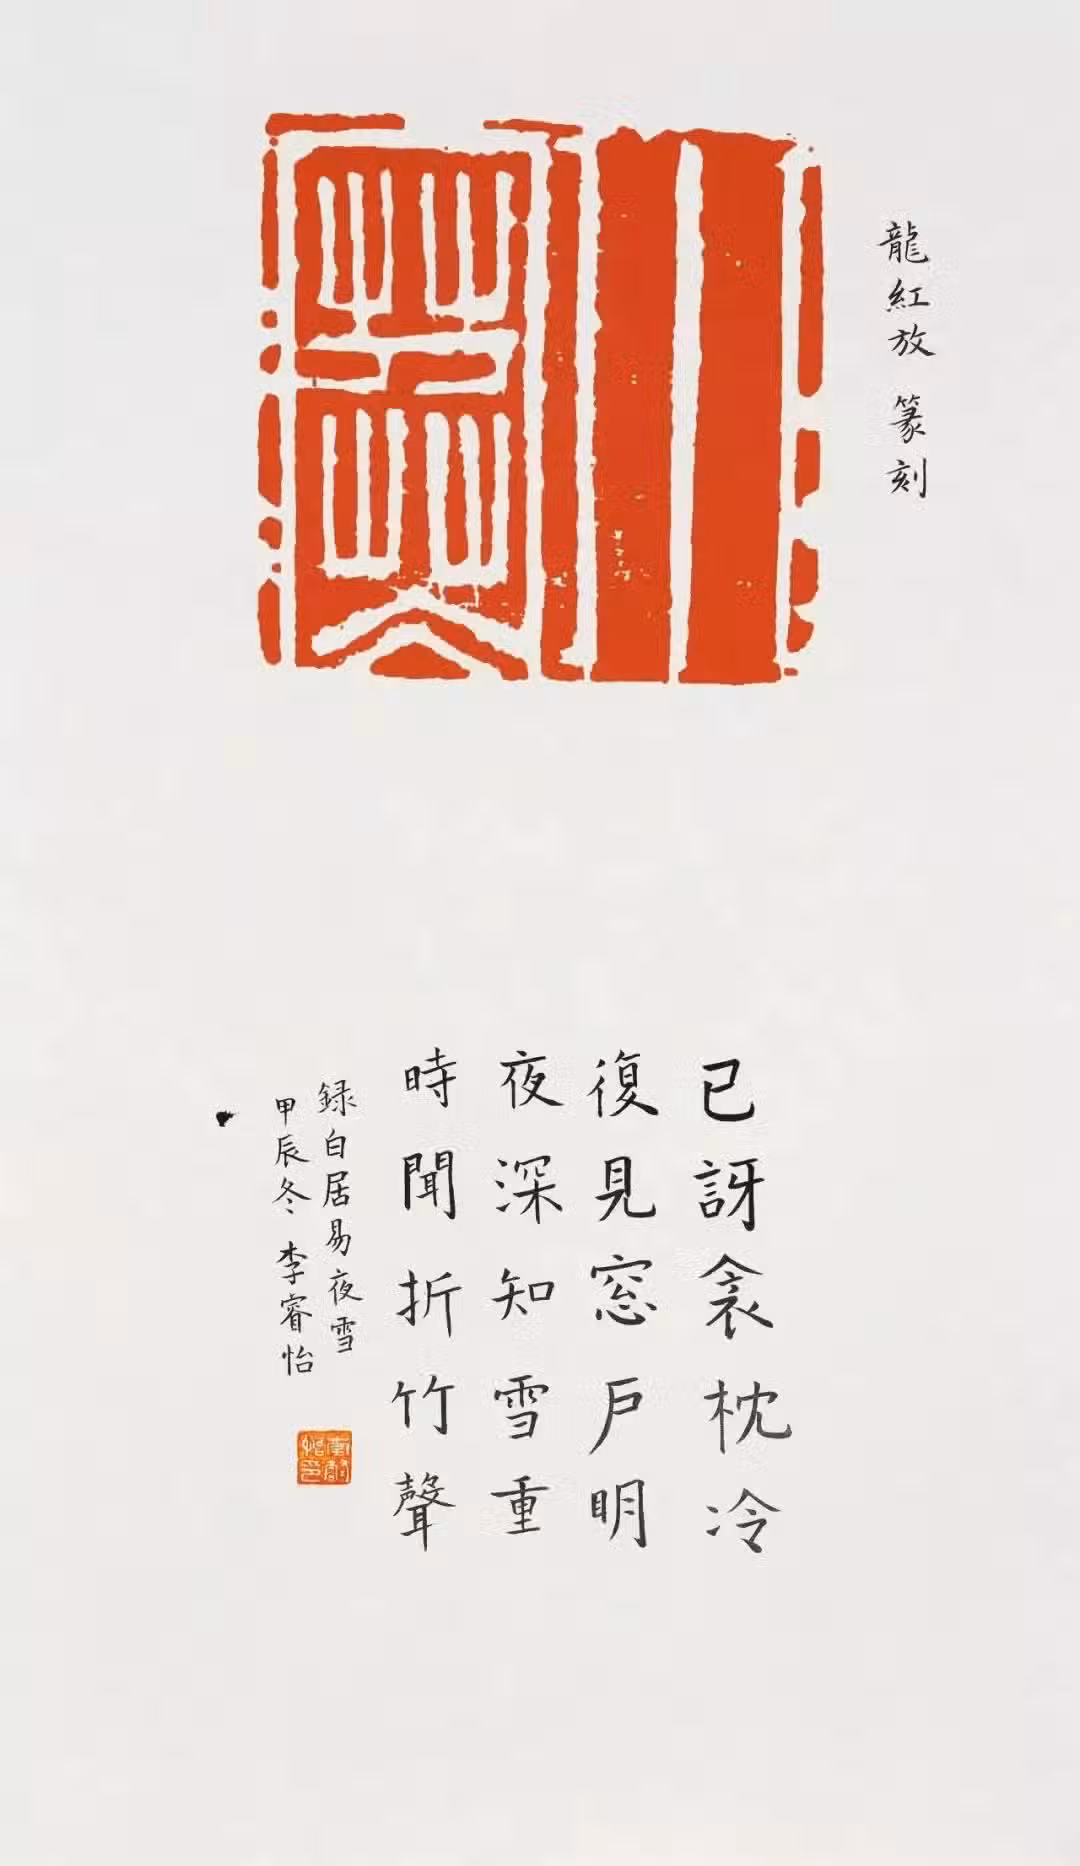 小寒
龍紅放 篆刻
已訝衾枕冷
復見窓戶明
夜深知雪重
時聞折竹聲
録白居易夜雪
甲辰冬 李睿怡